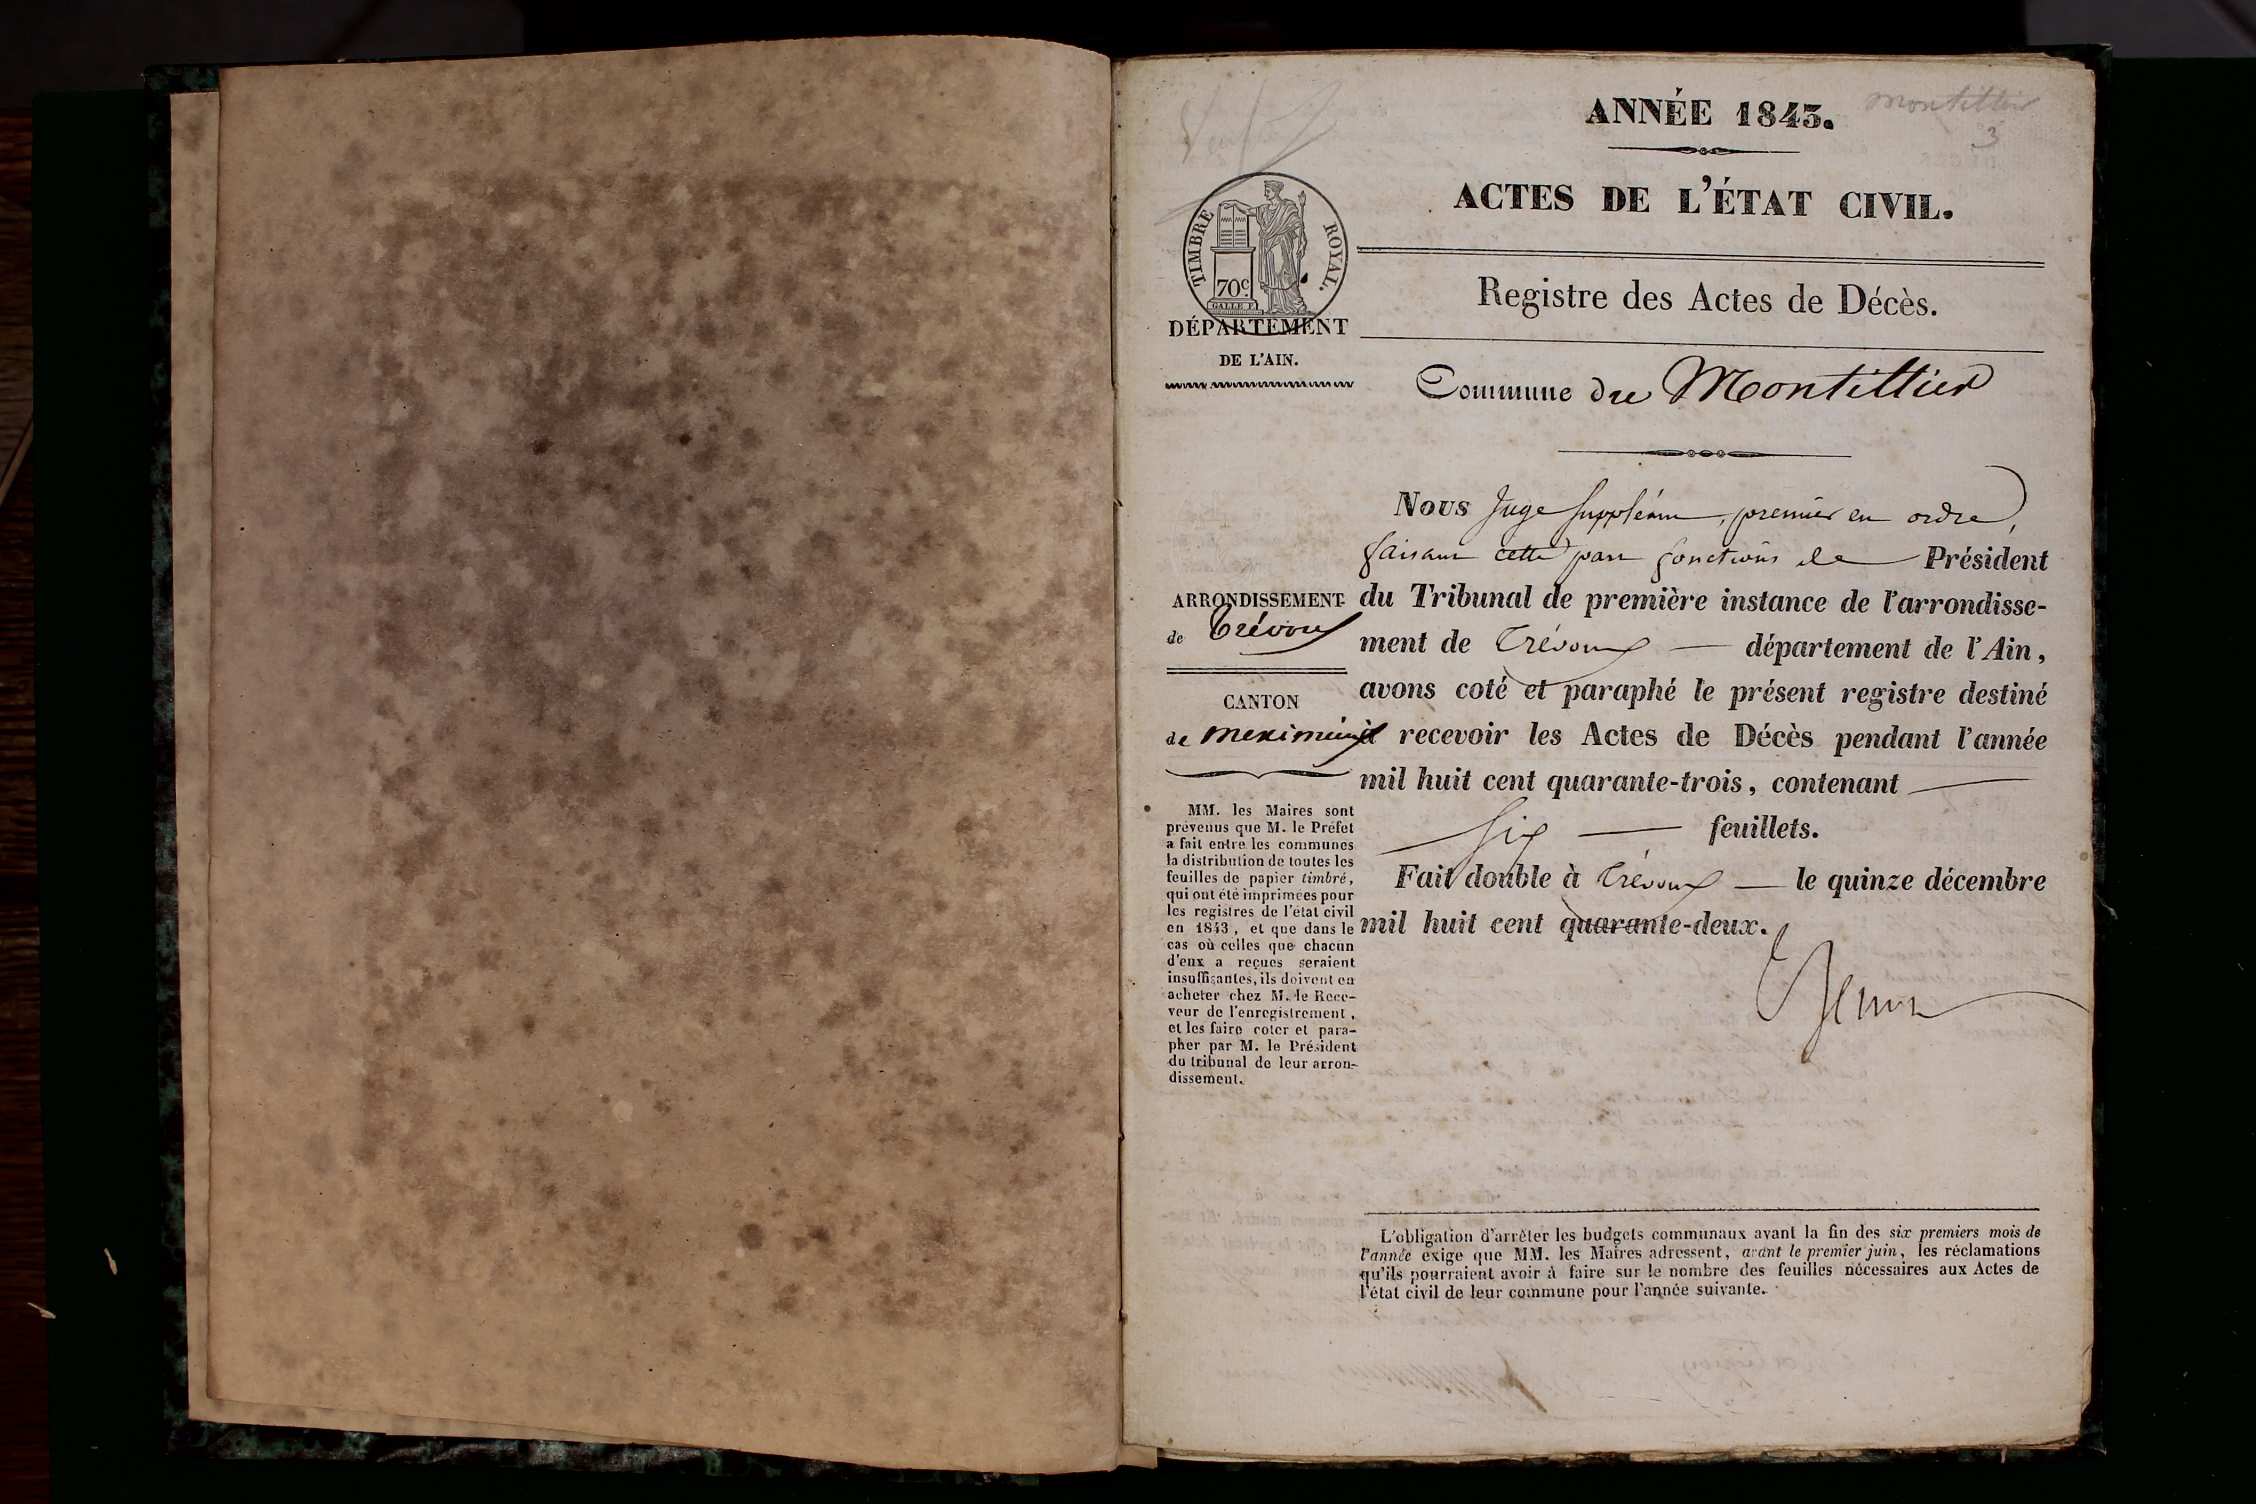 ANNÉE 1843.
Montellier
3
ACTES DE L'ÉTAT CIVIL.
TIMBRE ROYAL.
70c.
GALLE F.
DÉPARTEMENT
DE L'AIN.
Registre des Actes de Décès.
Commune de Montellier
ARRONDISSEMENT
de Trévoux
CANTON
de meximieux
MM. les Maires sont
prévenus que M. le Préfet
a fait entre les communes
la distribution de toutes les
feuilles de papier timbré,
qui ont été imprimées pour
les registres de l'état civil
en 1843, et que dans le
cas où celles que chacun
d'eux a reçues seraient
insuffisantes, ils doivent en
acheter chez M. le Rece-
veur de l'enregistrement,
et les faire coter et para-
pher par M. le Président
du tribunal de leur arron-
dissement.
Nous Juge suppléant, premier en ordre,
faisant cette part fonctions de Président
du Tribunal de première instance de l'arrondisse-
ment de Trévoux — département de l'Ain,
avons coté et paraphé le présent registre destiné
à recevoir les Actes de Décès pendant l'année
mil huit cent quarante-trois, contenant —
six — feuillets.
Fait double à Trévoux — le quinze décembre
mil huit cent quarante-deux.
L'obligation d'arrêter les budgets communaux avant la fin des six premiers mois de
l'année exige que MM. les Maires adressent, avant le premier juin, les réclamations
qu'ils pourraient avoir à faire sur le nombre des feuilles nécessaires aux Actes de
l'état civil de leur commune pour l'année suivante.